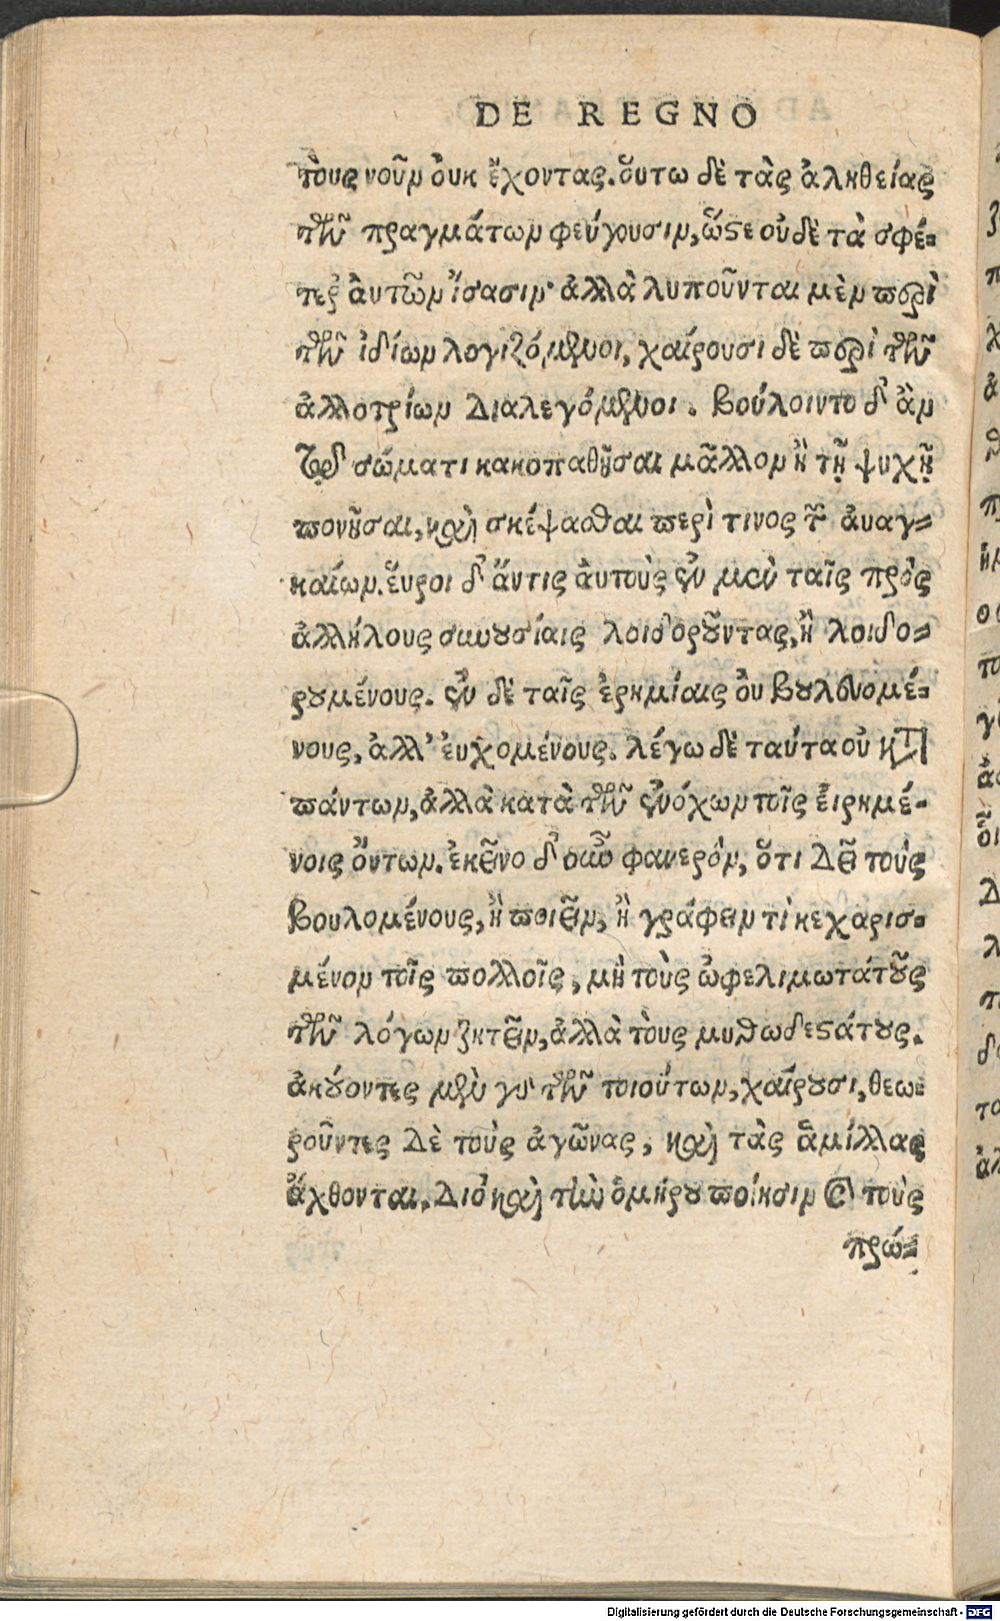 DE REGNO
τοὺς νοῦν ὀυκ ἔχοντας. ὅυτω δὲ τὰς ἀληθείας
τῶν πραγμάτων φεύγουσιν, ὥστε οὐδὲ τὰ σφέ=
τερ᾽ ἀυτῶν ἴσασιν· ἀλλὰ λυποῦνται μὲν περὶ
τῶν ἰδίων λογιζόμενοι, χαίρουσι δὲ περὶ τῶν
ἀλλοτρίων διαλεγόμενοι. βούλοιντο δ᾽ ἂν
τῷ σώματι κακοπαθῆσαι μᾶλλον ἢ τῇ ψυχῇ
πονῆσαι, καὶ σκέψασθαι περὶ τινος τῶν ἀναγ=
καίων. ἕυροι δ᾽ ἄντις ἀυτοὺς ἐν μὲν ταῖς πρὸς
ἀλλήλους συνουσίαις λοιδοροῦντας, ἢ λοιδο=
ρουμένους. ἐν δὲ ταῖς ἐρημίαις ὀυ βουλευομέ=
νους, ἀλλ᾽ ἐυχομένους. λέγω δὲ ταύτα οὐ κατὰ
πάντων, ἀλλὰ κατὰ τῶν ἐνόχων τοῖς ἐιρημέ-
νοις ὄντων. ἐκεῖνο δ᾽ οὖν φανερόν, ὅτι δεῖ τοὺς
βουλομένους, ἢ ποιεῖν, ἢ γράφειν τὶ κεχαρισ=
μένον τοῖς πολλοῖς, μὴ τοὺς ὠφελιμωτάτους
τῶν λόγων ζητεῖν, ἀλλὰ τοὺς μυθωδεστάτους.
ἀκούοντες μὲν γὰρ τῶν τοιούτων, χαίρουσι, θεω=
ροῦντες δὲ τοὺς ἀγῶνας, καὶ τὰς ἁμίλλας
ἄχθονται. διὸ καὶ τὴν ὁμήρου ποίησιν καὶ τοὺς
πρώ=
Digitalisierung gefördert durch die Deutsche Forschungsgemeinschaft - DFG